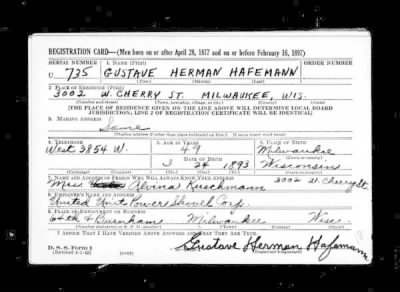 REGISTRATION CARD—(Men born on or after April 28, 1877 and on or before February 16, 1897)
SERIAL NUMBER 1. NAME (Print) ORDER NUMBER
U 735 GUSTAVE HERMAN HAFEMANN
(First) (Middle) (Last)
2. PLACE OF RESIDENCE (Print)
3002 W. CHERRY ST. MILWAUKEE, WIS.
(Number and street) (Town, township, village, or city) (County) (State)
[THE PLACE OF RESIDENCE GIVEN ON THE LINE ABOVE WILL DETERMINE LOCAL BOARD
JURISDICTION; LINE 2 OF REGISTRATION CERTIFICATE WILL BE IDENTICAL]
3. MAILING ADDRESS
Same
[Mailing address if other than place indicated on line 2. If same insert word same]
4. TELEPHONE 5. AGE IN YEARS 6. PLACE OF BIRTH
West 3854 W. 49 Milwaukee
DATE OF BIRTH
3 24 1893 Wisconsin
(Exchange) (Number) (Mo.) (Day) (Yr.) (State or country)
7. NAME AND ADDRESS OF PERSON WHO WILL ALWAYS KNOW YOUR ADDRESS 3002 W. Cherry St.
Miss Alvina Kuschmann
8. EMPLOYER'S NAME AND ADDRESS
United Unit Power Shovel Corp.
9. PLACE OF EMPLOYMENT OR BUSINESS
64th & Burnham Milwaukee Wisc.
(Number and street or R. F. D. number) (Town) (County) (State)
I AFFIRM THAT I HAVE VERIFIED ABOVE ANSWERS AND THAT THEY ARE TRUE.
D. S. S. Form 1
(Revised 4-1-42)
Gustave Herman Hafemann